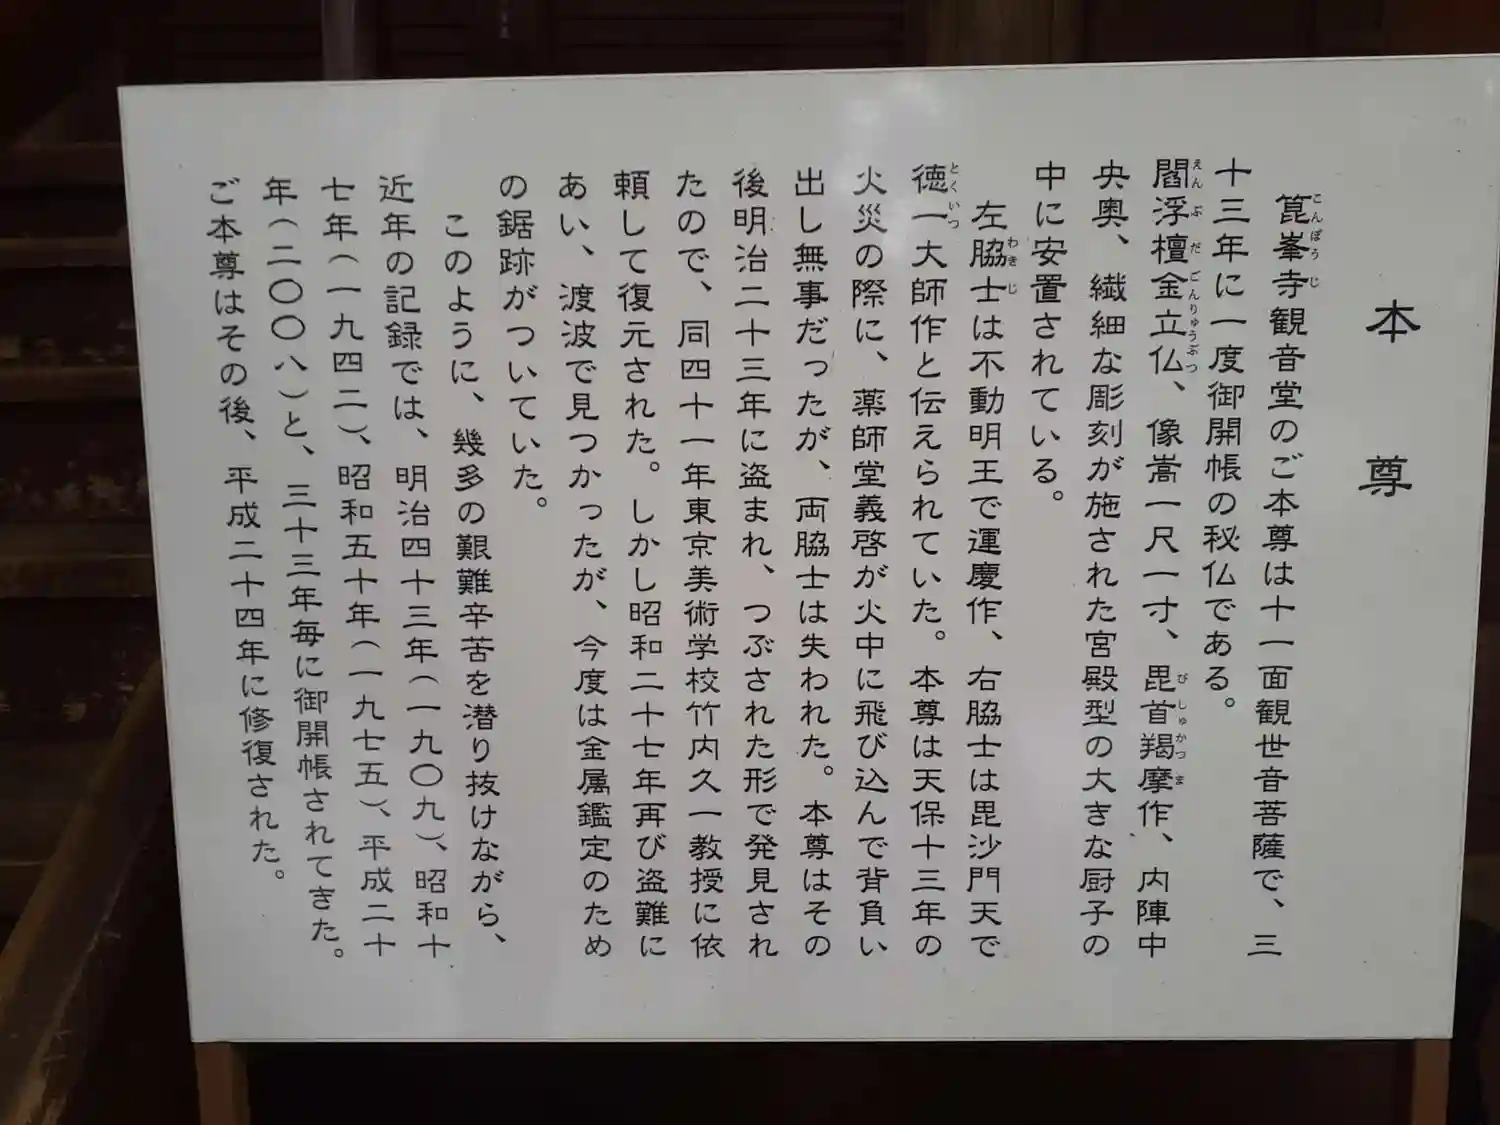 本尊
箟峯寺観音堂のご本尊は十一面観世音菩薩で、三
十三年に一度御開帳の秘仏である。
閻浮檀金立仏、像嵩一尺一寸、毘首羯摩作、内陣中
央奥、繊細な彫刻が施された宮殿型の大きな厨子の
中に安置されている。
左脇士は不動明王で運慶作、右脇士は毘沙門天で
徳一大師作と伝えられていた。本尊は天保十三年の
火災の際に、薬師堂義啓が火中に飛び込んで背負い
出し無事だったが、両脇士は失われた。本尊はその
後明治二十三年に盗まれ、つぶされた形で発見され
たので、同四十一年東京美術学校竹内久一教授に依
頼して復元された。しかし昭和二十七年再び盗難に
あい、渡波で見つかったが、今度は金属鑑定のため
の鋸跡がついていた。
このように、幾多の艱難辛苦を潜り抜けながら、
近年の記録では、明治四十三年(一九〇九)、昭和十
七年(一九四二)、昭和五十年(一九七五)、平成二十
年(二〇〇八)と、三十三年毎に御開帳されてきた。
ご本尊はその後、平成二十四年に修復された。
こんぽうじ
えんぶだごんりゅうぶつ
びしゅかつま
わきじ
とくいつ